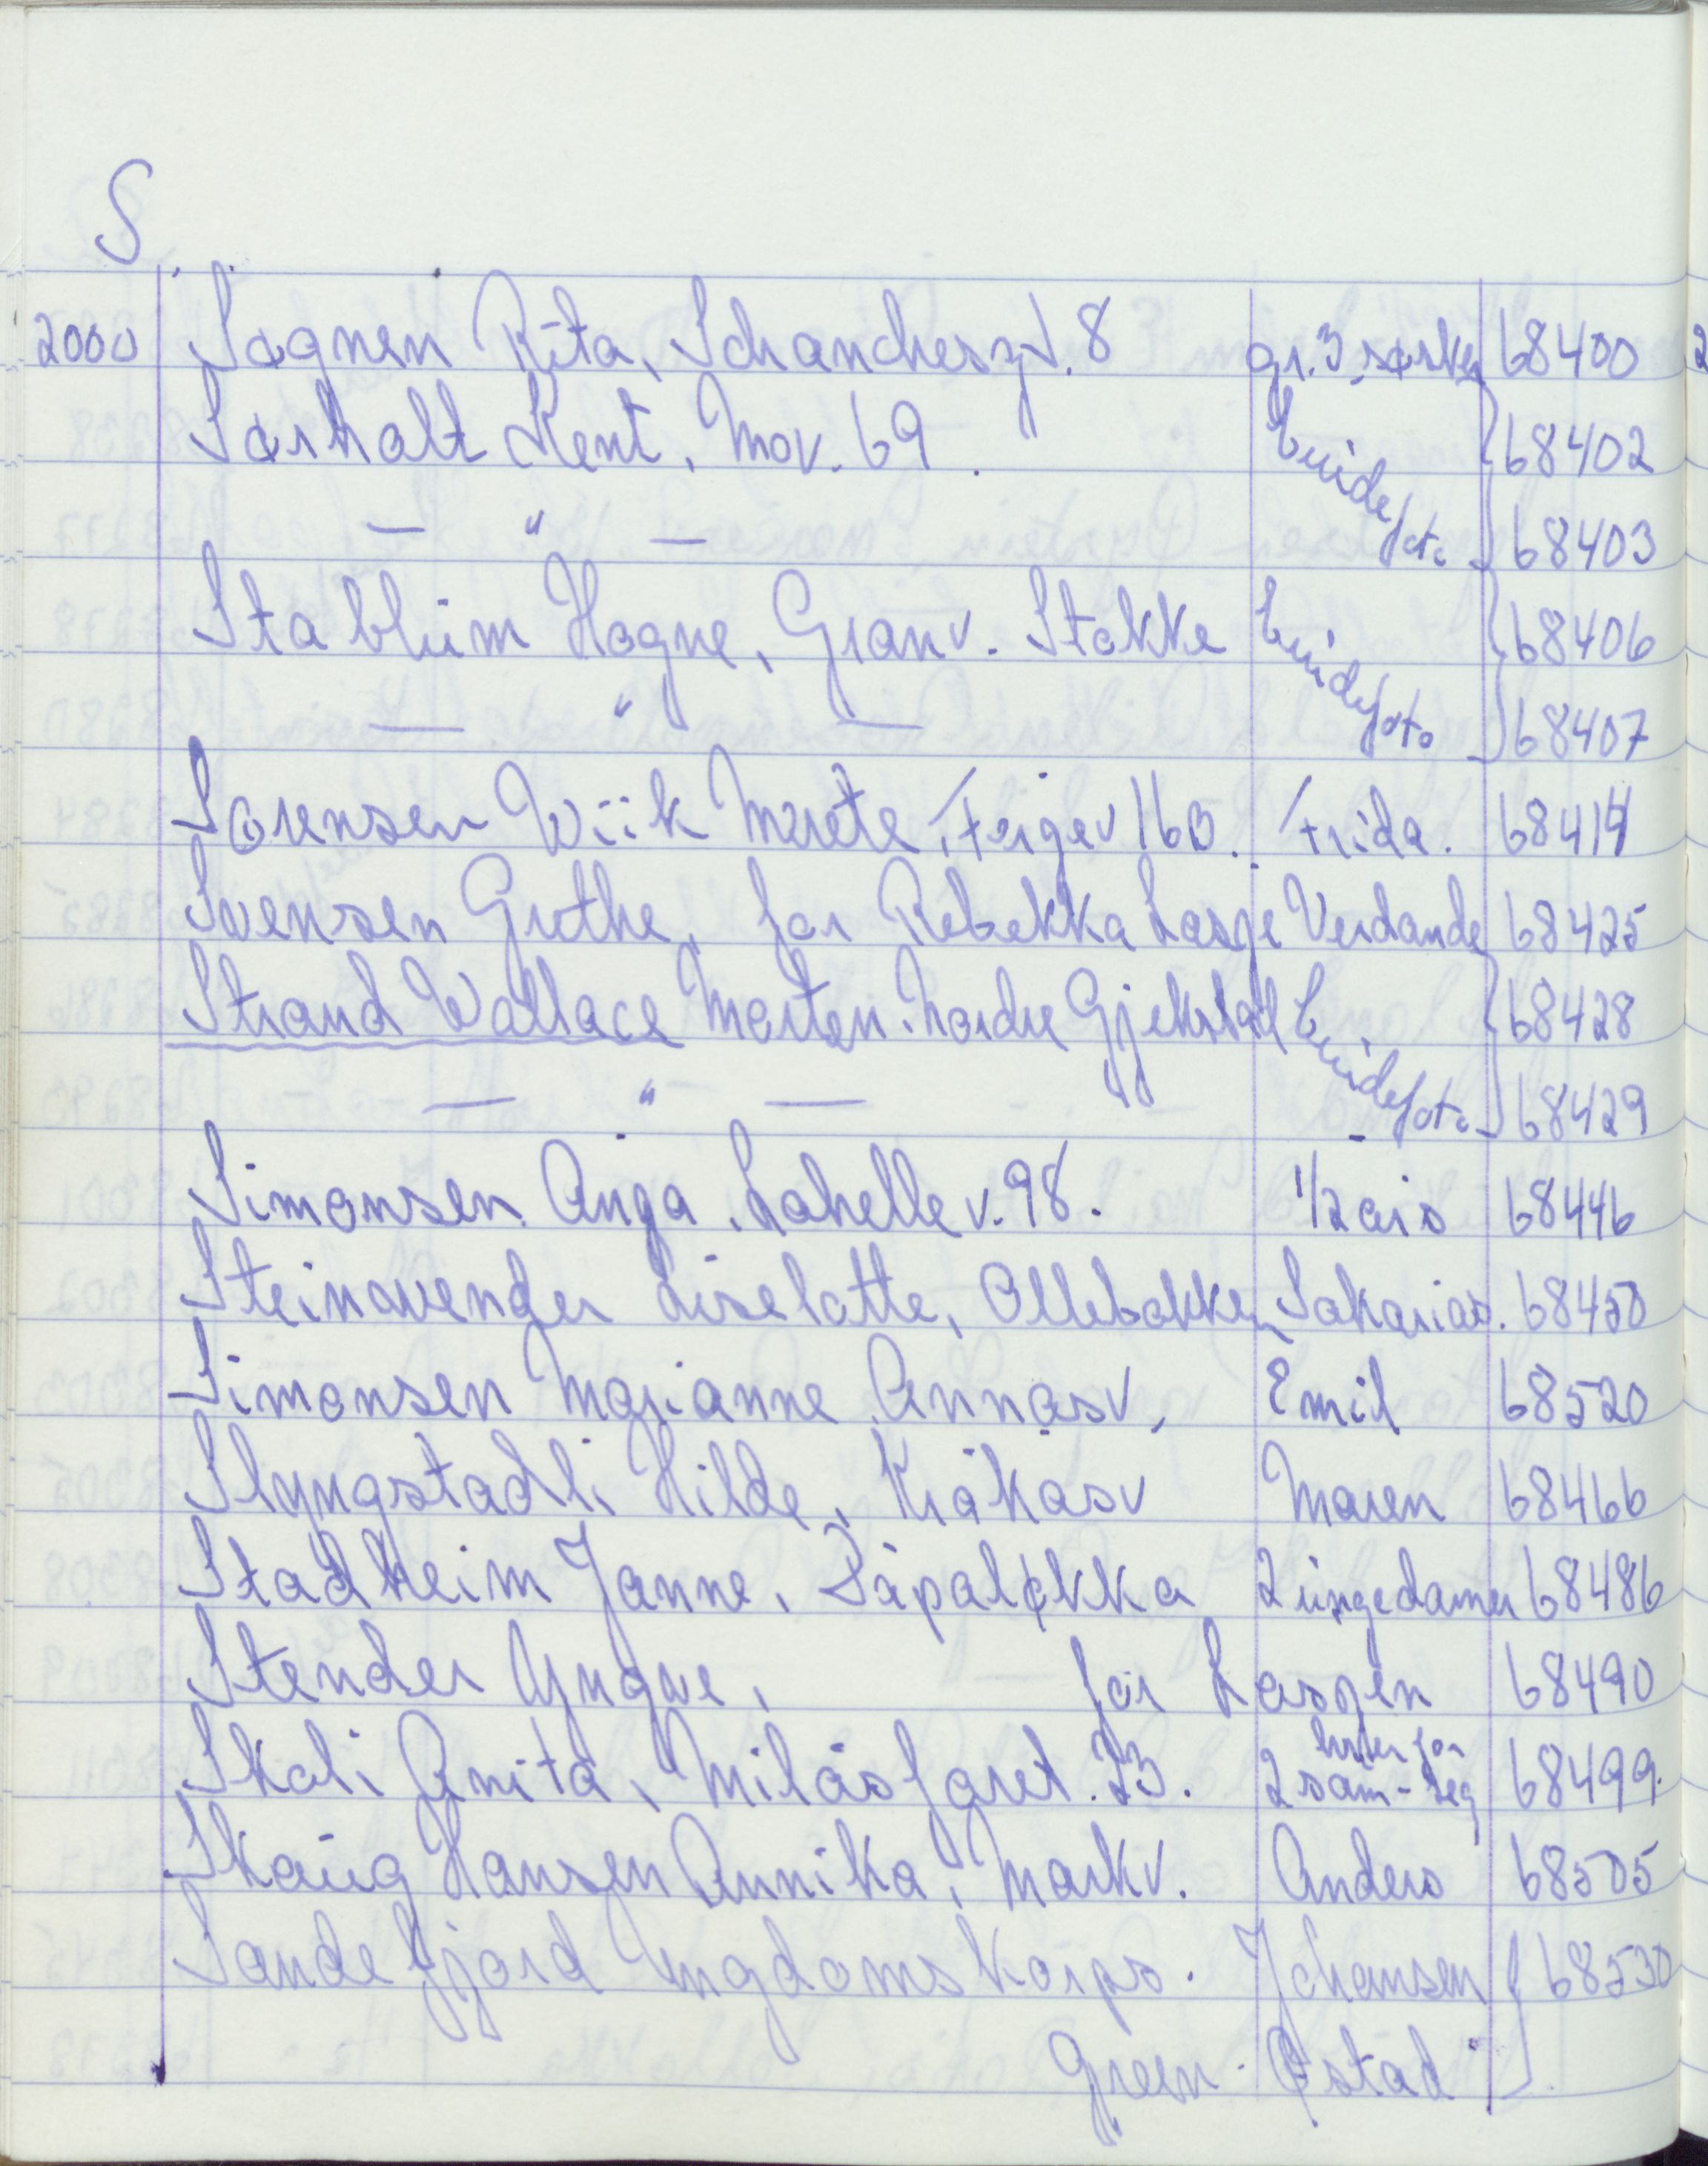 S
2000 Søgnen Rita, Schanchesgt. 8 gr. 3 søsken 68400
Sørholt Kent, Mov. 69. brudefoto 68402
— " — 68403
Stablum Hogne, Granv. Stokke brudefoto 68406
— " — 68407
Sørensen Wiik Merete, Fergev 16B. Frida. 68414
Svensen Grethe, for Rebekka Løsje Verdande 68425
Strand Wallace Morten. Nordre Gjekstad brudefoto 68428
— " — 68429
Simonsen Anga, Lahelle v. 98. 1/2 års 68446
Steinsvender Liselotte, Ollebakken Sakarias. 68450
Simonsen Marianne Annasv, Emil 68520
Slyngstadli Hilde, Kråkåsv Maren 68466
Stadheim Janne, Pipaløkka 2 unge damer 68486
Stender Yngve, for Losjen 68490
Skoli Anita, Milåsfaret. 23. 2 søm-seg 68499.
Skaug Hansen Annika, Markv. Anders 68505
Sandefjord Ungdomskorps. Johansen 68530
Green - Østad